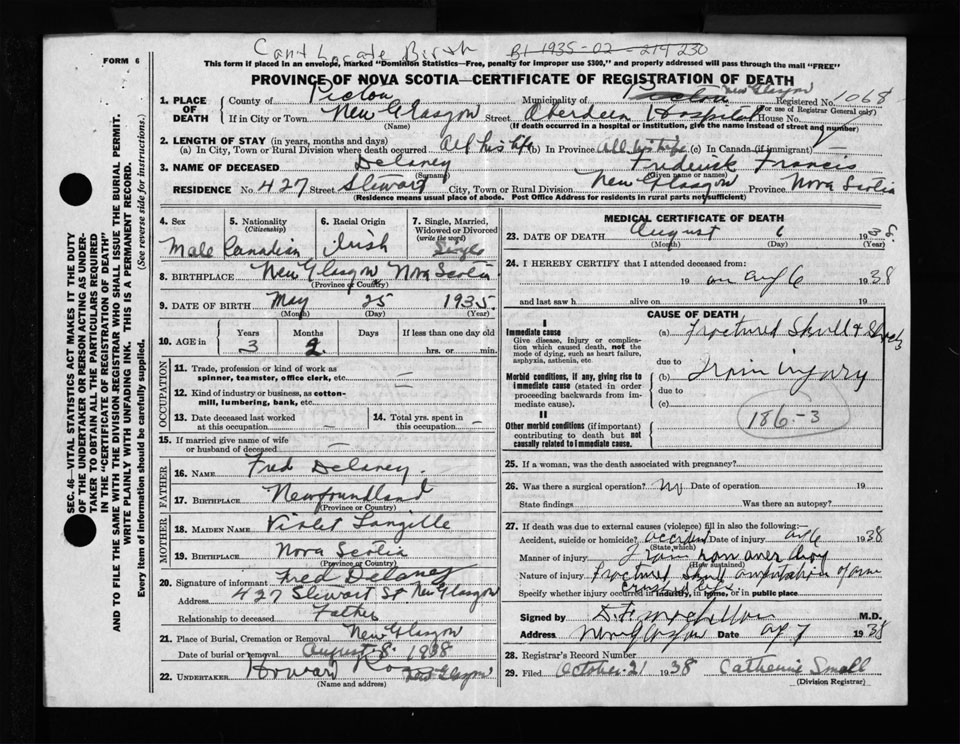 Cant Locate Birth B1 1935-02-219230
FORM 6
This form if placed in an envelope, marked "Dominion Statistics—Free, penalty for improper use $300," and properly addressed will pass through the mail "FREE"
PROVINCE OF NOVA SCOTIA—CERTIFICATE OF REGISTRATION OF DEATH
SEC. 46—VITAL STATISTICS ACT MAKES IT THE DUTY
OF THE UNDERTAKER OR PERSON ACTING AS UNDER-
TAKER TO OBTAIN ALL THE PARTICULARS REQUIRED
IN THE "CERTIFICATE OF REGISTRATION OF DEATH"
AND TO FILE THE SAME WITH THE DIVISION REGISTRAR WHO SHALL ISSUE THE BURIAL PERMIT.
WRITE PLAINLY WITH UNFADING INK. THIS IS A PERMANENT RECORD.
Every item of Information should be carefully supplied. (See reverse side for instructions.)
1. PLACE OF DEATH
County of Pictou Municipality of Pictou New Glasgow Registered No. 1068
(For use of Registrar General only)
If in City or Town New Glasgow Street Aberdeen Hospital House No.
(Name) (If death occurred in a hospital or institution, give the name instead of street and number)
2. LENGTH OF STAY (in years, months and days)
(a) In City, Town or Rural Division where death occurred All his life (b) In Province All his life (c) In Canada (if immigrant) —
3. NAME OF DECEASED Delaney Frederick Francis
(Surname) (Given name or names)
RESIDENCE No. 427 Street Stewart City, Town or Rural Division New Glasgow Province Nova Scotia
(Residence means usual place of abode. Post Office Address for residents in rural parts not sufficient)
4. Sex 5. Nationality (Citizenship) 6. Racial Origin 7. Single, Married, Widowed or Divorced (write the word)
Male Canadian Irish Single
8. BIRTHPLACE New Glasgow Nova Scotia
(Province or Country)
9. DATE OF BIRTH May 25 1935
(Month) (Day) (Year)
10. AGE in Years Months Days If less than one day old
3 2 hrs. or min.
OCCUPATION
11. Trade, profession or kind of work as spinner, teamster, office clerk, etc. —
12. Kind of industry or business, as cotton-mill, lumbering, bank, etc. —
13. Date deceased last worked at this occupation — 14. Total yrs. spent in this occupation —
15. If married give name of wife or husband of deceased —
FATHER
16. NAME Fred Delaney.
17. BIRTHPLACE Newfoundland
(Province or Country)
MOTHER
18. MAIDEN NAME Violet Langille
19. BIRTHPLACE Nova Scotia
(Province or Country)
20. Signature of informant Fred Delaney
Address 427 Stewart St New Glasgow
Relationship to deceased Father
21. Place of Burial, Cremation or Removal New Glasgow
Date of burial or removal August 8 1938
22. UNDERTAKER Howard Ross New Glasgow
(Name and address)
MEDICAL CERTIFICATE OF DEATH
23. DATE OF DEATH August 6 1938
(Month) (Day) (Year)
24. I HEREBY CERTIFY that I attended deceased from:
19 on aug 6 1938
and last saw h alive on 19
CAUSE OF DEATH
I
Immediate cause
Give disease, injury or complication which caused death, not the mode of dying, such as heart failure, asphyxia, asthenia, etc.
(a) Fractured Skull & Shock
due to
Morbid conditions, if any, giving rise to immediate cause (stated in order proceeding backwards from immediate cause).
(b) Train injury
due to
(c)
186-3
II
Other morbid conditions (if important) contributing to death but not causally related to immediate cause.
25. If a woman, was the death associated with pregnancy?
26. Was there a surgical operation? No Date of operation 19
State findings Was there an autopsy?
27. If death was due to external causes (violence) fill in also the following:
Accident, suicide or homicide? accident Date of injury aug 6 1938
(State which)
Manner of injury Train ran over boy
(How sustained)
Nature of injury Fractured skull amputation of arm
Specify whether injury occurred in industry, in home, or in public place
Signed by M.D.
Address New Glasgow Date aug 7 1938
28. Registrar's Record Number
29. Filed October 21 1938 Catherine Small
(Division Registrar)